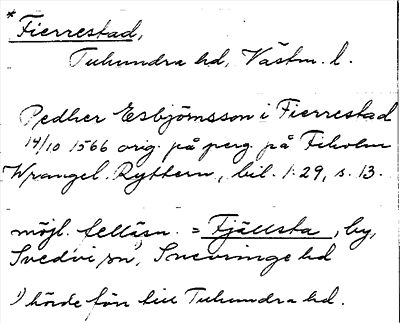 * Fierrestad,
Tuhundra hd, Västm. l.
Pedher Esbjörnsson i Fierrestad
14/10 1566 orig. på perg. på Fiholm
Wrangel. Ryttern, bil. 1:29, s. 13.
möjl. felläsn. = Fjällsta, by,
Svedvi sn¹⁾, Snevringe hd
1) hörde förr till Tuhundra hd.